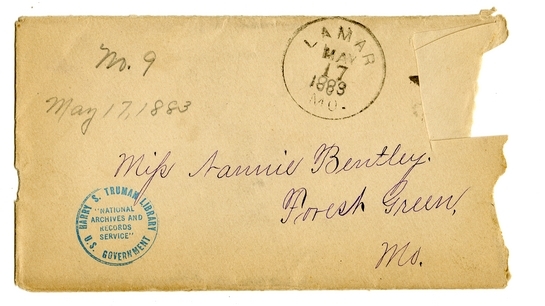 No. 9
May 17, 1883
LAMAR
MAY
17
1883
MO.
Miss Nannie Bentley.
Forest Green,
Mo.
HARRY S. TRUMAN LIBRARY
"NATIONAL
ARCHIVES AND
RECORDS
SERVICE"
U.S. GOVERNMENT